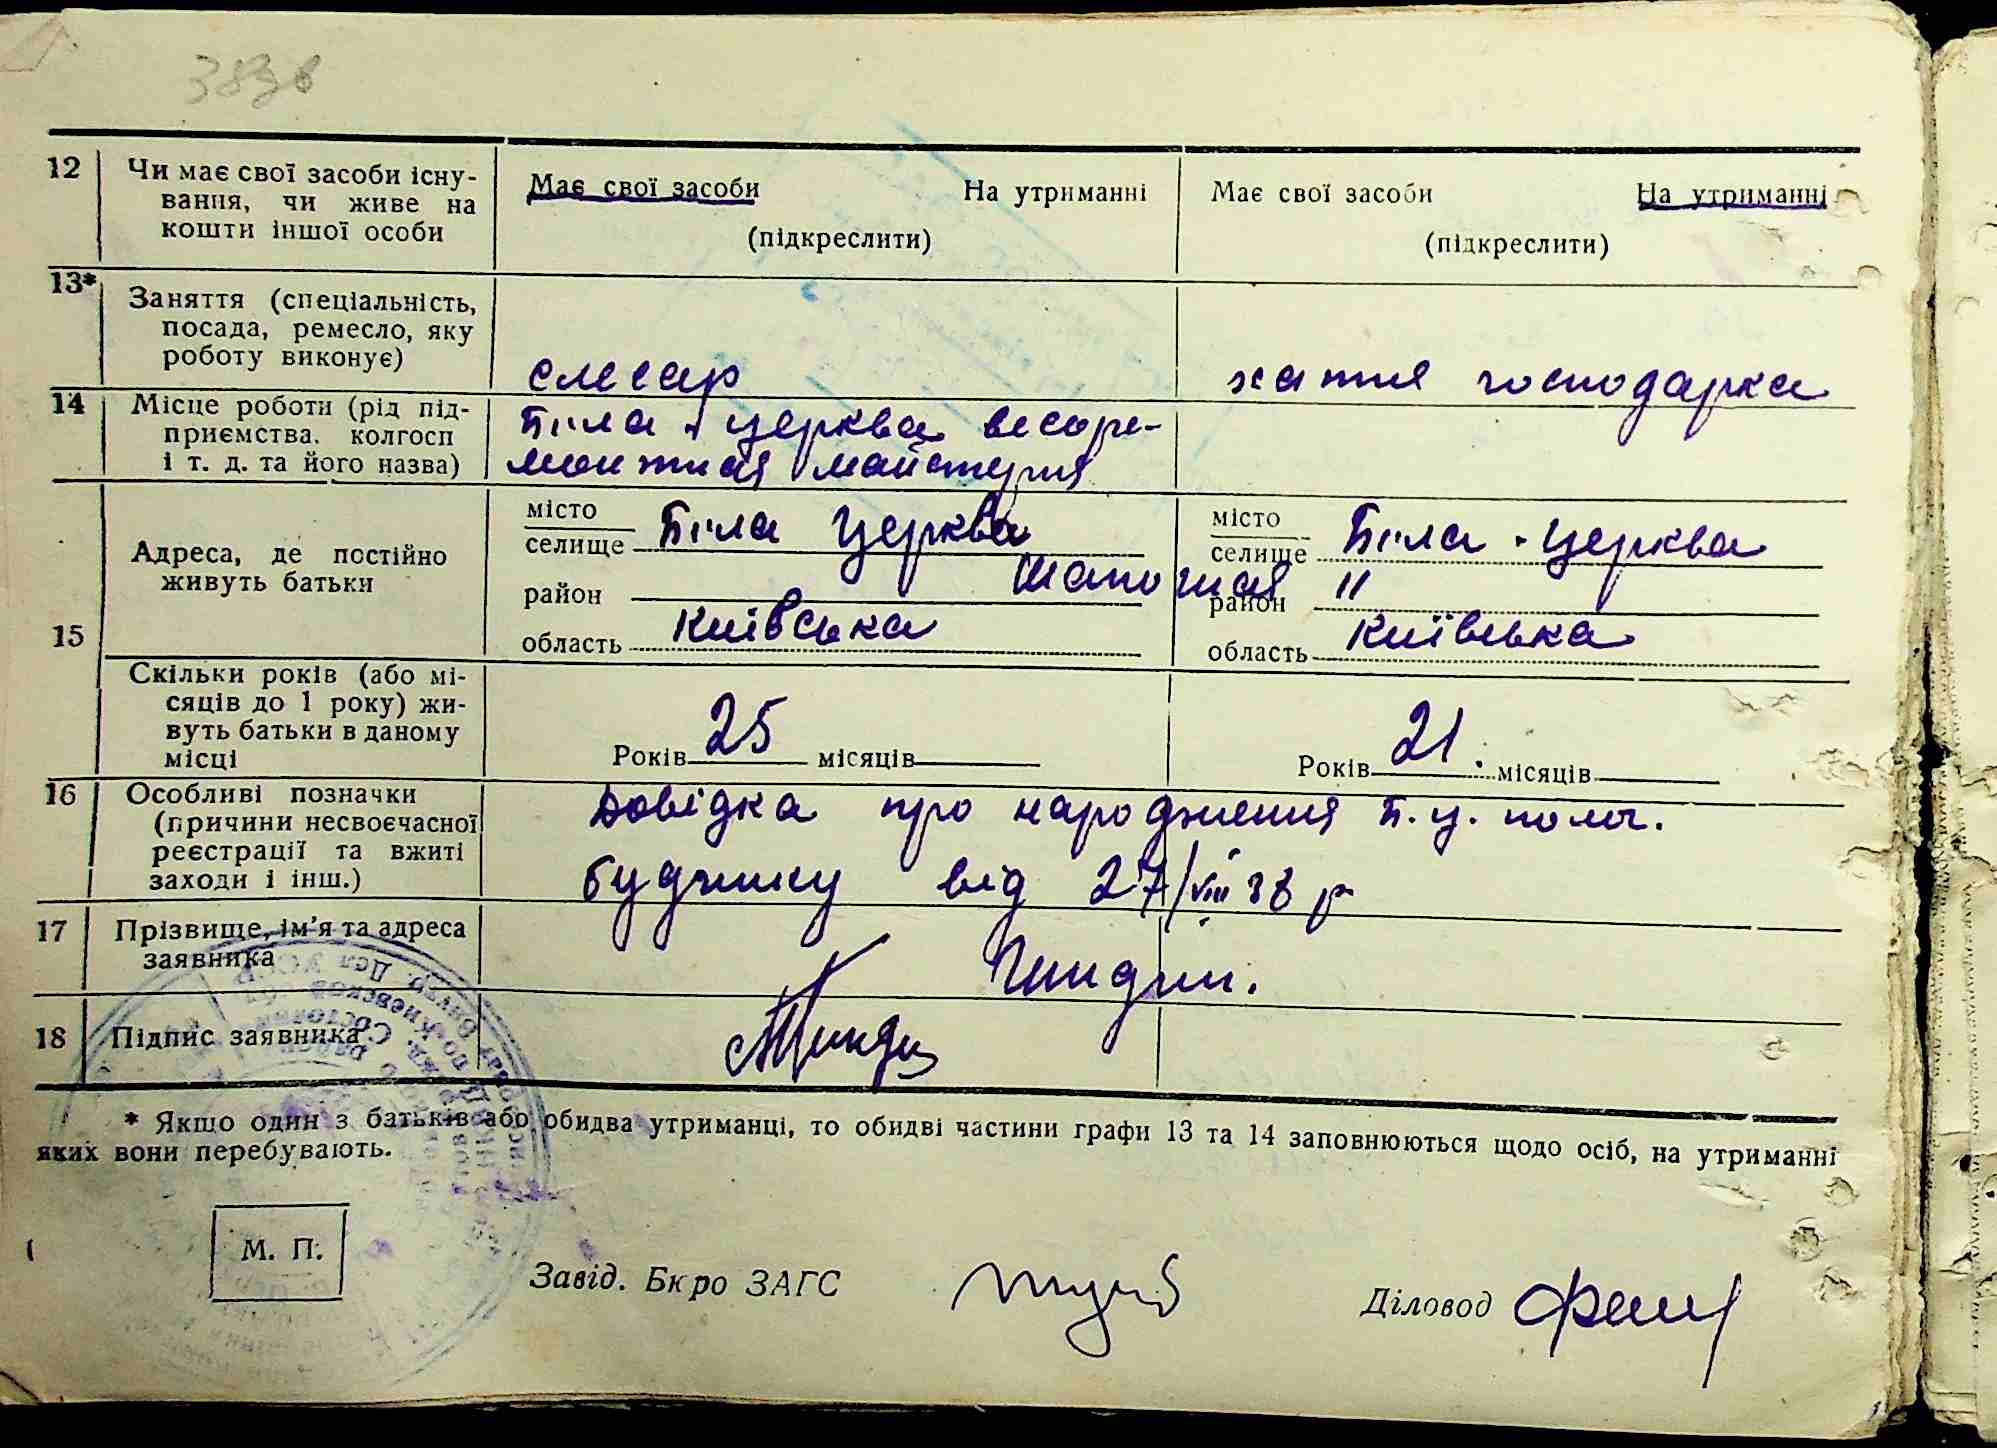 12 Чи має свої засоби існу-
вання, чи живе на
кошти іншої особи
Має свої засоби На утриманні
(підкреслити)
Має свої засоби На утриманні
(підкреслити)
13* Заняття (спеціальність,
посада, ремесло, яку
роботу виконує)
слесар
хатня господарка
14 Місце роботи (рід під-
приємства, колгосп
і т. д. та його назва)
Біла церква весоре-
монтная майстерня
15 Адреса, де постійно
живуть батьки
місто
селище Біла Церква
район
область Київська
місто
селище Біла-Церква
район "
область Київська
Скільки років (або мі-
сяців до 1 року) жи-
вуть батьки в даному
місці
Років 25 місяців
Років 21. місяців
16 Особливі позначки
(причини несвоєчасної
реєстрації та вжиті
заходи і інш.)
Довідка про народження Б.Ц. полог.
будинку від 27/VIII 38 р
17 Прізвище, ім'я та адреса
заявника
18 Підпис заявника
* Якщо один з батьків або обидва утриманці, то обидві частини графи 13 та 14 заповнюються щодо осіб, на утриманні
яких вони перебувають.
М. П.
Завід. Бюро ЗАГС
Діловод